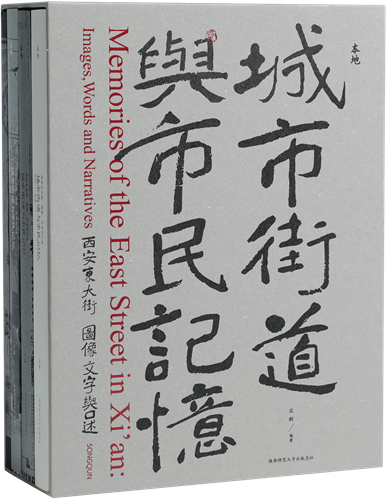 本地
城市街道
與市民記憶
Memories of the East Street in Xi'an:
Images, Words and Narratives
西安東大街 圖像文字與口述
SONGQUN
宋群/編著
陝西師範大學出版總社